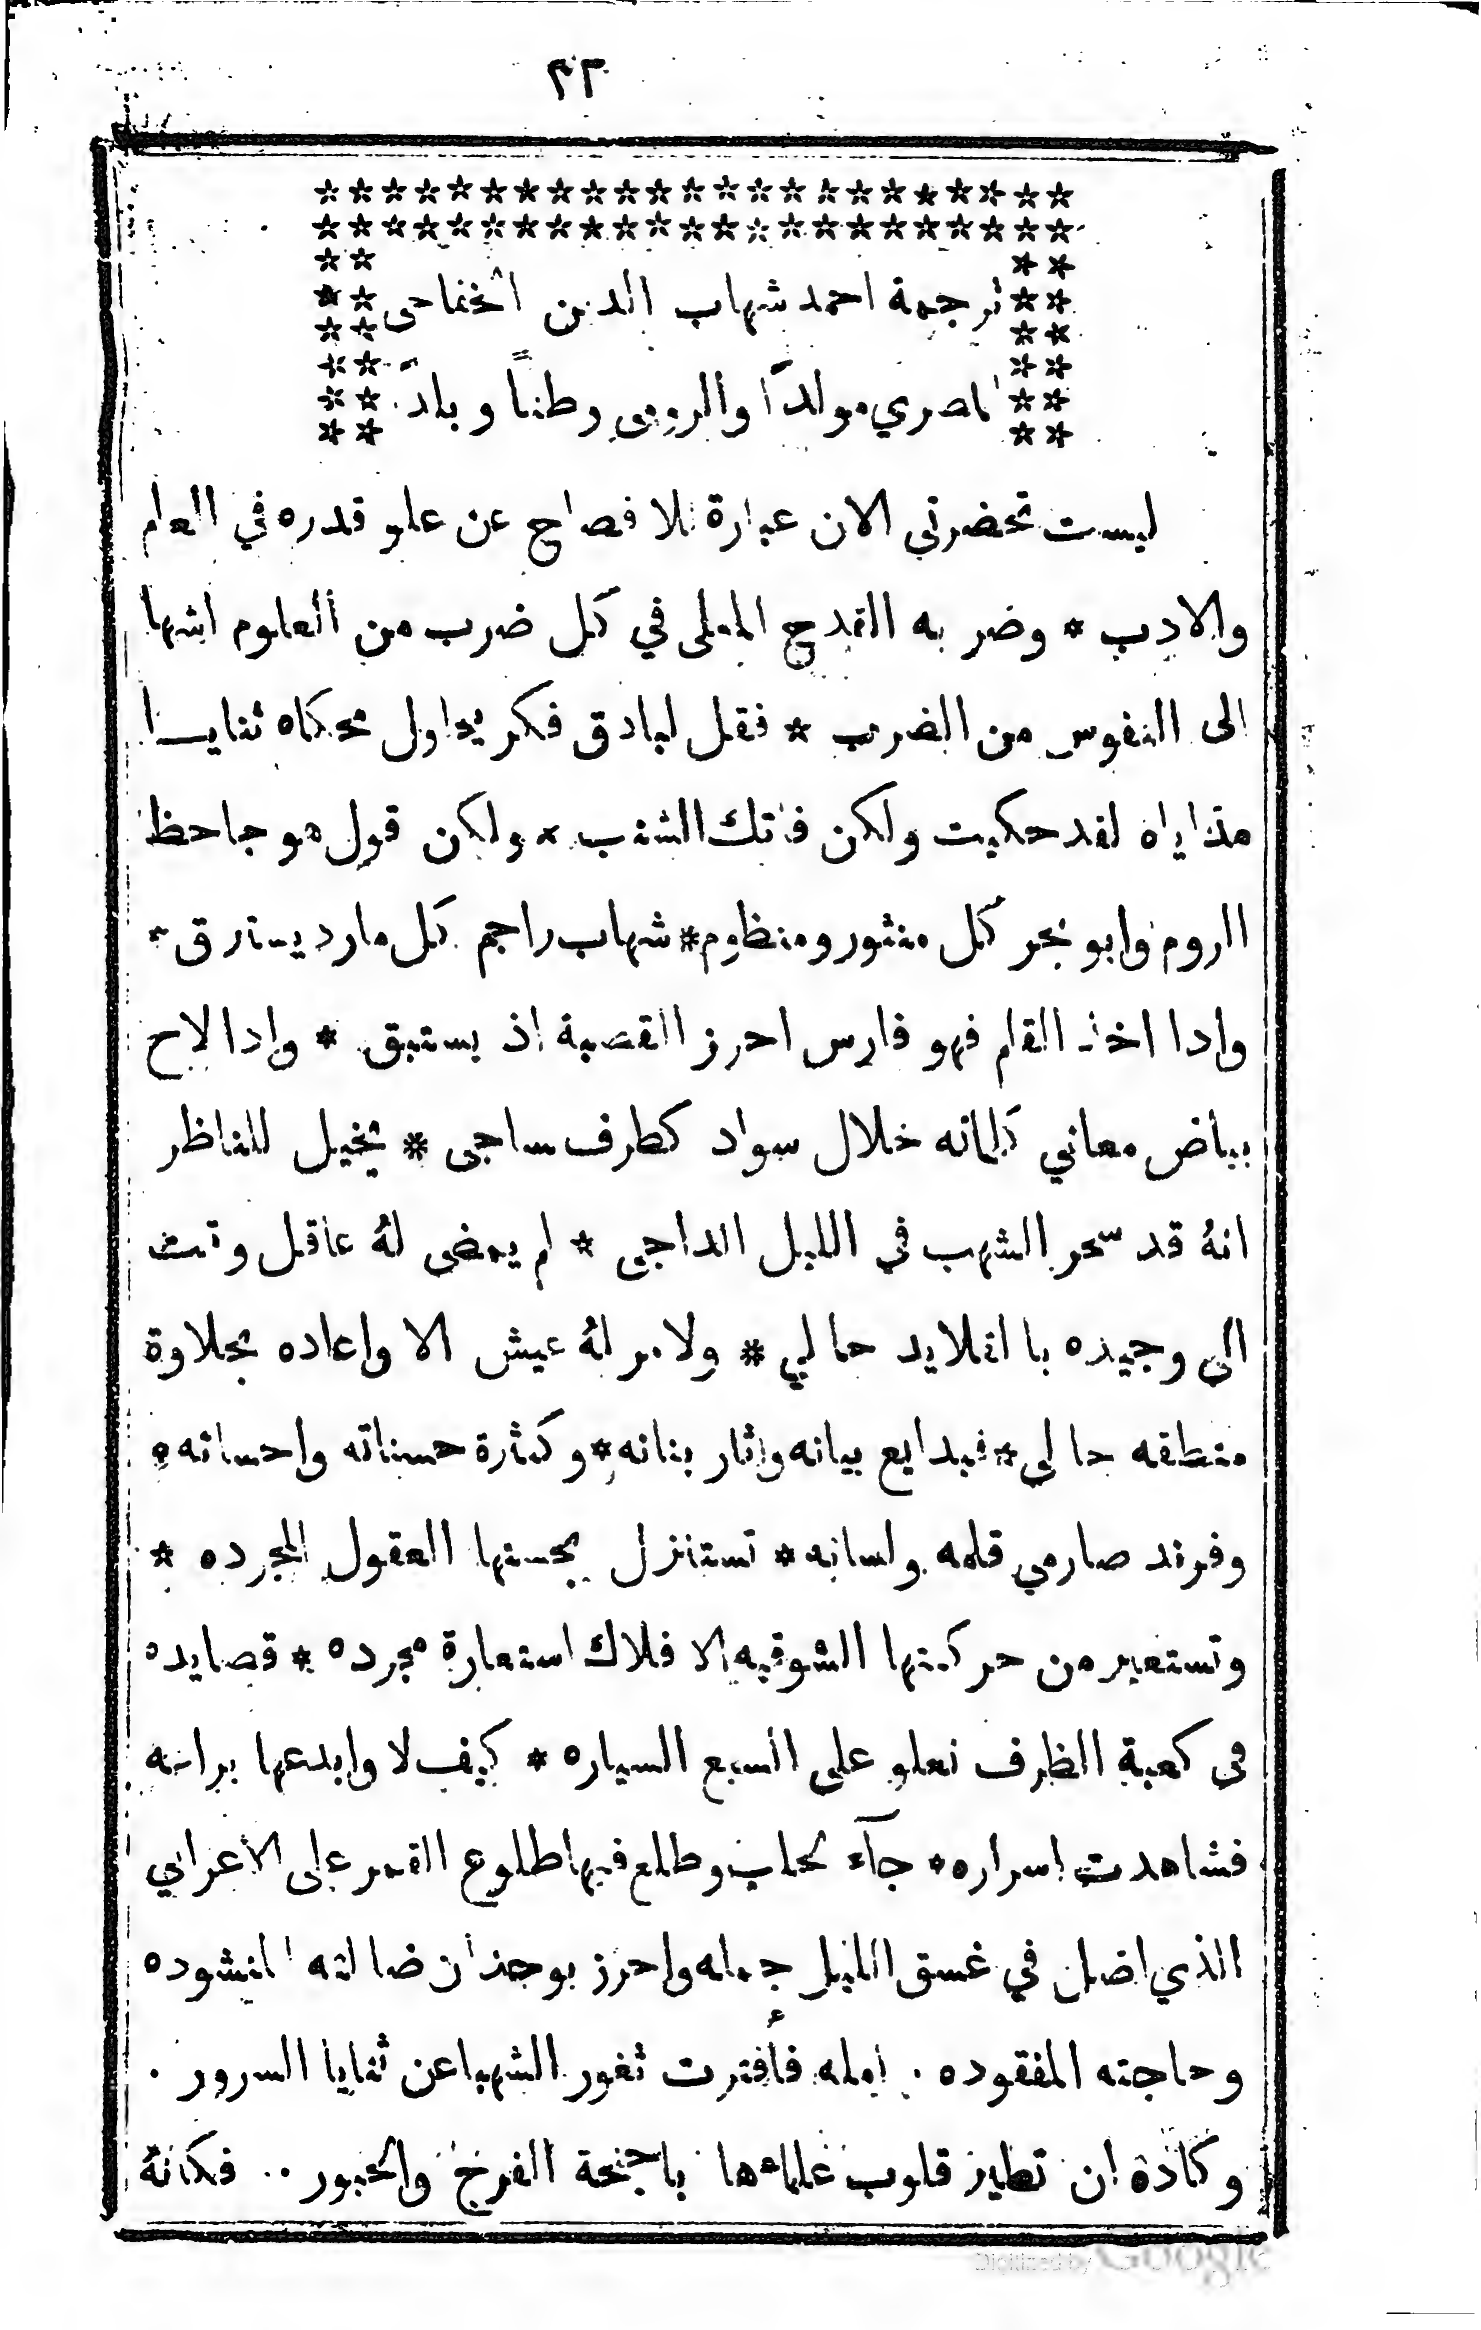 ٣٣
ترجمة احمد شهاب الدين الخفاجى
المصري مولدًا والرومى وطنًا وبلدً
ليست تحضرني الان عبارة للافصاح عن علو قدره في العلم
والادب * وضربه القدح المعلى في كل ضرب من العلوم اشها
الى النفوس من الضرب * فقل لبادق فكر يحاول محكاه ثنايا
مذاياه لقد حكيت ولكن فاتك الشنب * ولكن قول هو جاحظ
الروم وابو بحر كل منثور ومنظوم * شهاب راجم كل مارد يسترق *
وادا اخذ القلم فهو فارس احرز القصبة اذ يستبق * وادا لاح
بياض معاني كلماته خلال سواد كطرف ساجى * تخيل للناظر
انهُ قد سحر الشهب في الليل الداجى * لم يمضى لهُ عاقل وقت
الى وجيده با القلايد حالي * ولا مر لهُ عيش الا واعاده بحلاوة
منطقه حالي * فبدايع بيانه واثار بنانه * وكثرة حسناته واحسانه *
وفرند صارمي قلمه ولسانه * تستنزل بحسنها العقول المجرده *
وتستعير من حركتها الشوقيه الافلاك استعارة مجرده * قصايده
في كعبة الظرف تعلو على السبع السياره * كيف لا وابدعها براعه
فشاهدت اسراره * جآء لحلب وطلع فيها طلوع القمر على الاعرابي
الذي اضل في غسق الليل جمله واحرز بوجدان ضالته المنشوده
وحاجته المفقوده . امله فأفترت ثغور الشهبا عن ثنايا السرور .
وكادة ان تطير قلوب علماءها باجنحة الفرخ والحبور .. فكانهُ
Digitized by Google